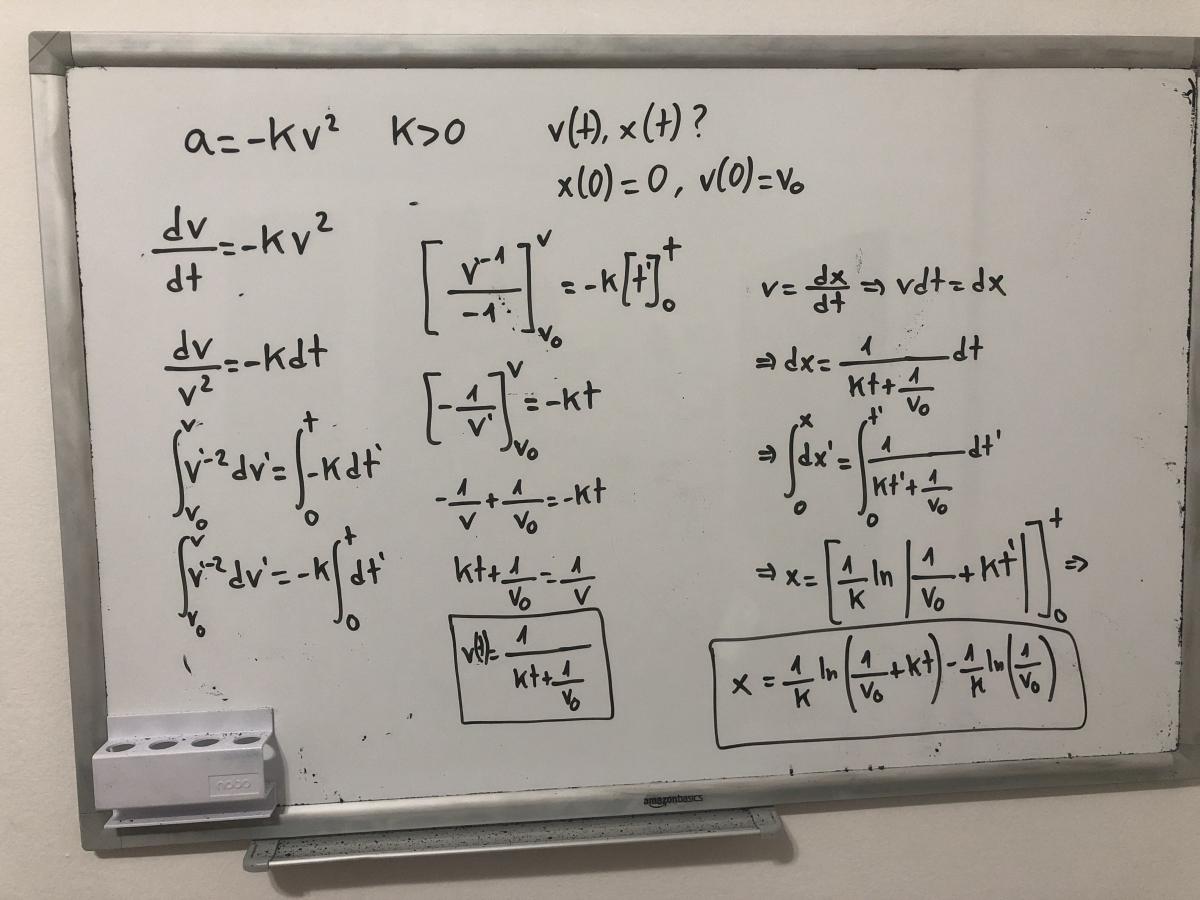 a=-kv² k>0 v(t), x(t)?
x(0)=0, v(0)=v₀
dv/dt=-kv²
dv/v²=-kdt
∫_{v₀}^{v} v'⁻²dv'=∫_0^t -kdt'
∫_{v₀}^{v} v'⁻²dv'=-k∫_0^t dt'
[v'⁻¹/-1]_{v₀}^{v} = -k[t']_0^t
[-1/v']_{v₀}^{v} = -kt
-1/v+1/v₀=-kt
kt+1/v₀=1/v
v(t)=1/(kt+1/v₀)
v=dx/dt ⇒ vdt=dx
⇒ dx=1/(kt+1/v₀) dt
⇒ ∫_0^x dx'=∫_0^{t'} 1/(kt'+1/v₀) dt'
⇒ x=[1/k ln|1/v₀+kt'|]_0^t ⇒
x=1/k ln(1/v₀+kt)-1/k ln(1/v₀)
nobo
amazonbasics